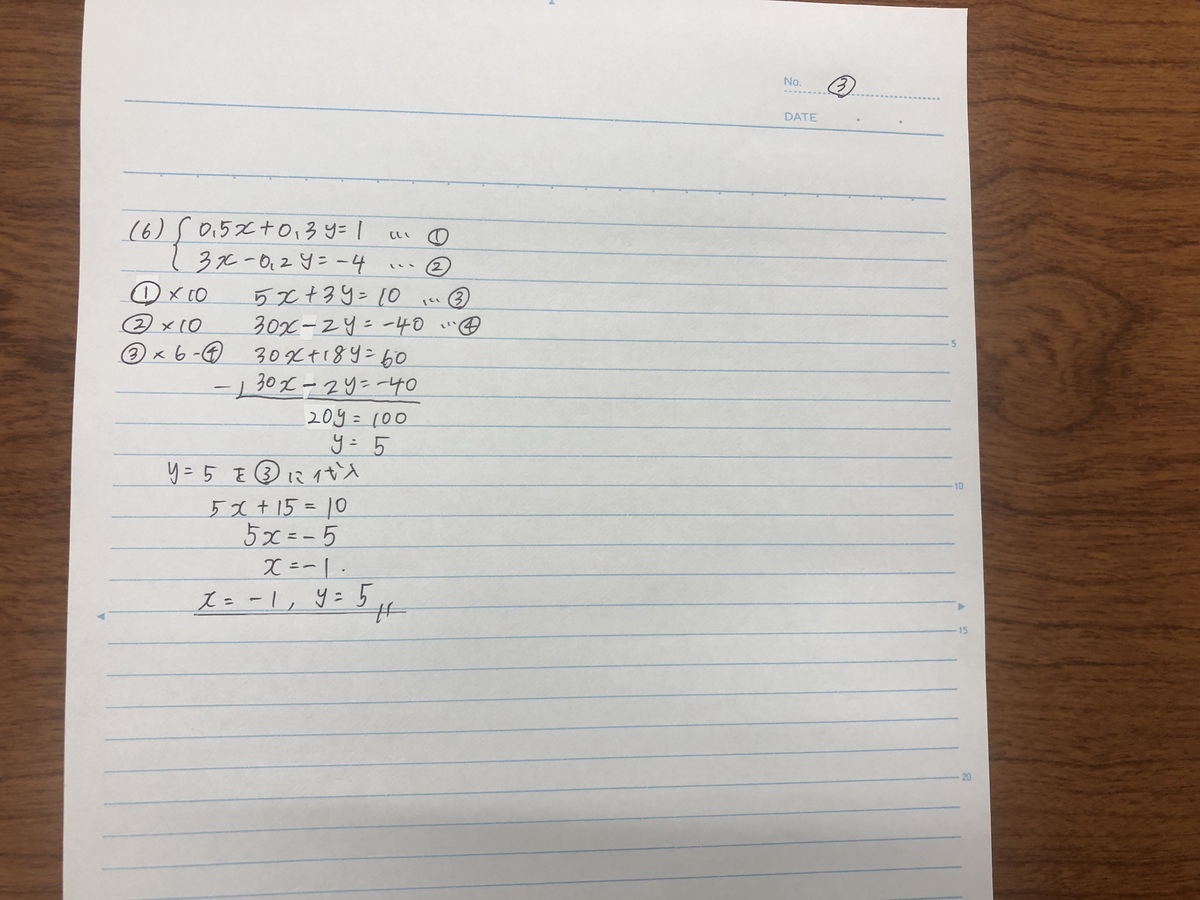 No. ③
DATE . .
(6) { 0.5x+0.3y=1 … ①
3x-0.2y=-4 … ②
①×10 5x+3y=10 … ③
②×10 30x-2y=-40 … ④
③×6-④ 30x+18y=60
-) 30x-2y=-40
20y=100
y=5
5
y=5を③に代入
10
5x+15=10
5x=-5
x=-1.
x=-1, y=5〃
15
20